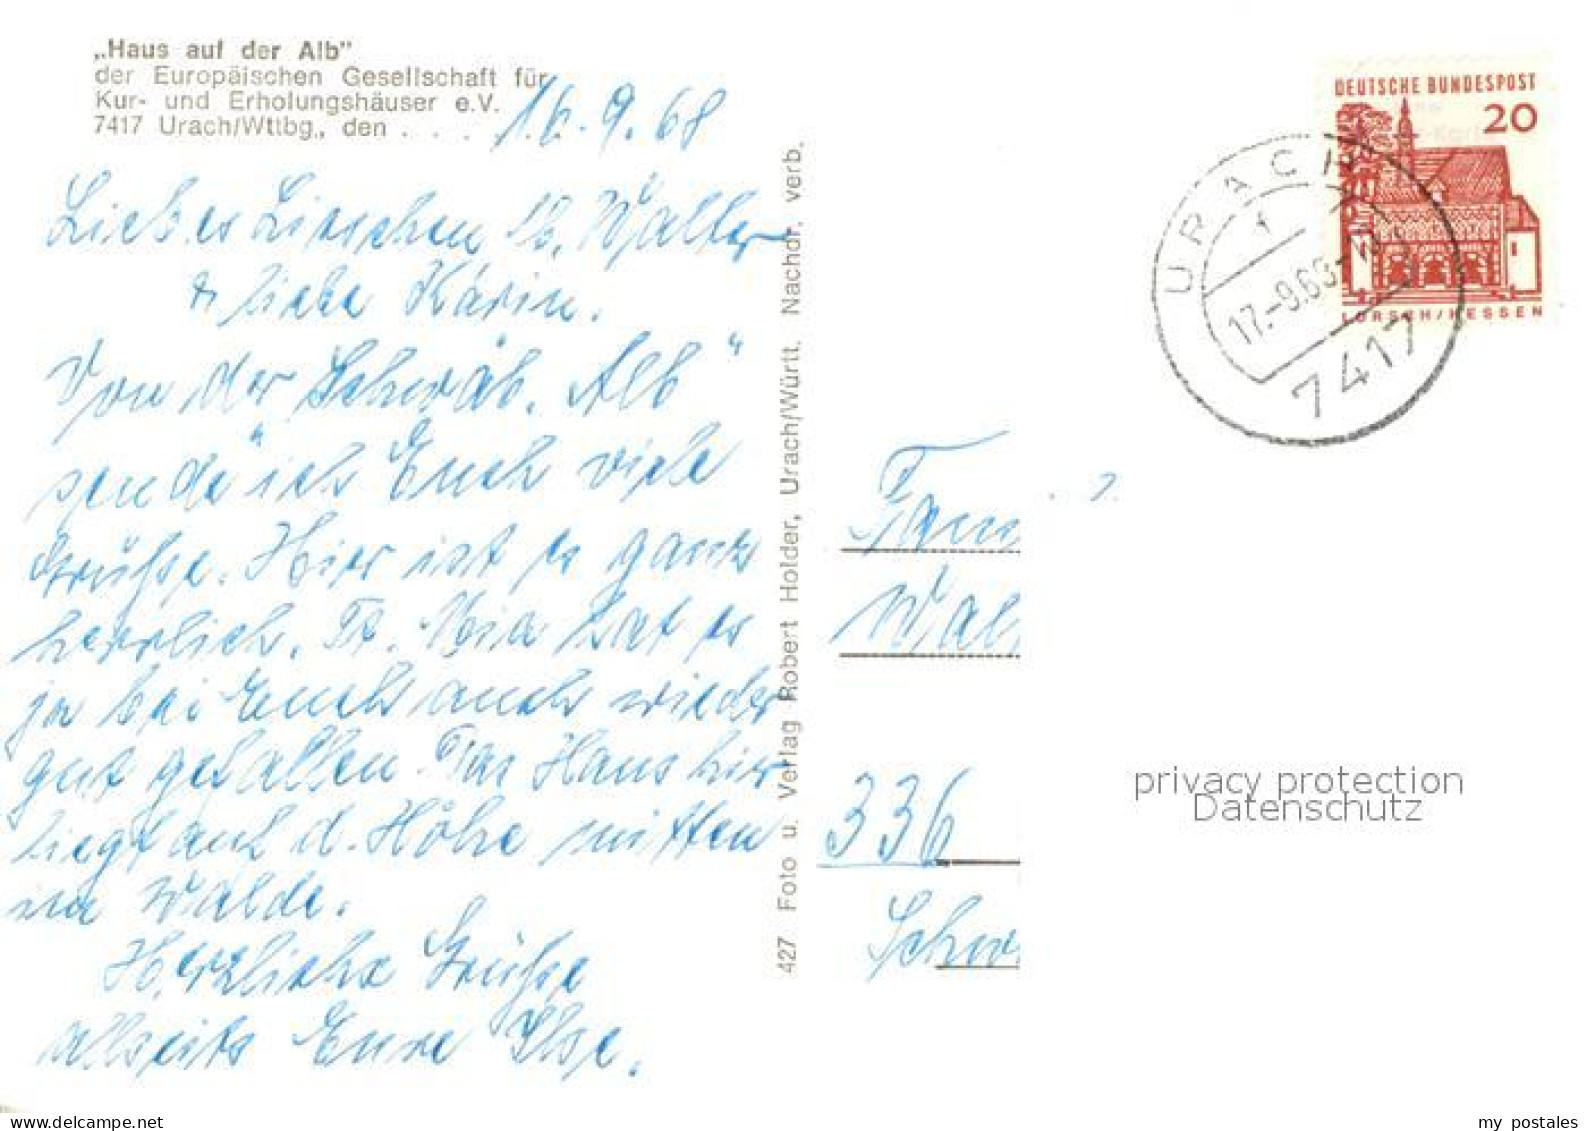 „Haus auf der Alb"
der Europäischen Gesellschaft für
Kur- und Erholungshäuser e.V.
7417 Urach/Wttbg., den . . . . 16.9.68
Liebes Lieschen lb. Walter
& liebe Karin.
Von der „Schwäb. Alb"
sende ich Euch viele
Grüsse. Hier ist es ganz
herrlich. Tt. Mia hat es
ja bei Euch auch wieder
gut gefallen. Das Haus hier
liegt auf d. Höhe mitten
im Walde.
Herzliche Grüsse
allseits Eure Ilse.
427 Foto u. Verlag Robert Holder, Urach/Württ. Nachdr. verb.
DEUTSCHE BUNDESPOST
20
LORSCH/HESSEN
URACH
1
17.-9.68
7417
Fam
Wal
336
Schw
privacy protection
Datenschutz
delcampe.net
my_postales